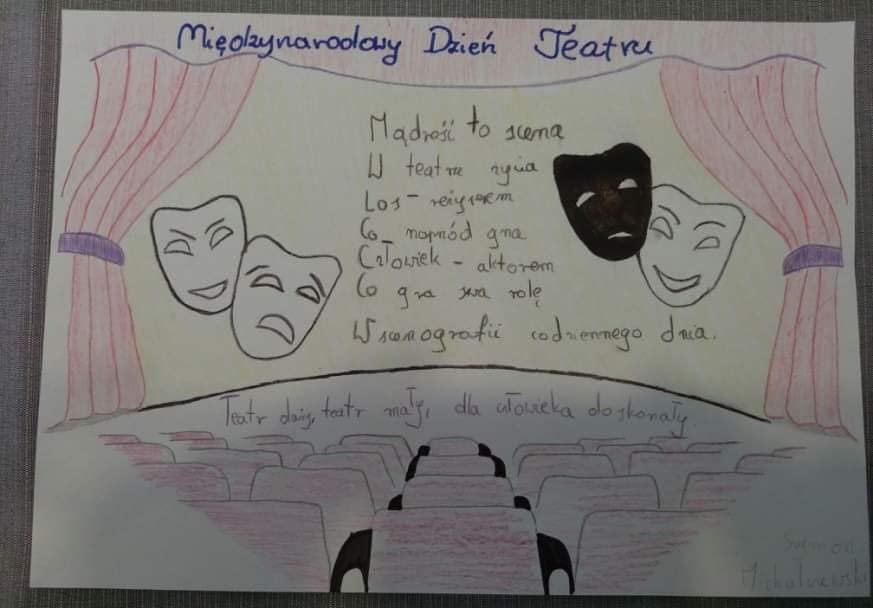 Międzynarodowy Dzień Teatru
Mądrość to scena
W teatrze życia
Los - reżyserem
Co naprzód gna
Człowiek - aktorem
Co gra swą rolę
W scenografii codziennego dnia.
Teatr duży, teatr mały, dla człowieka doskonały.
Szymon
Michalniewski